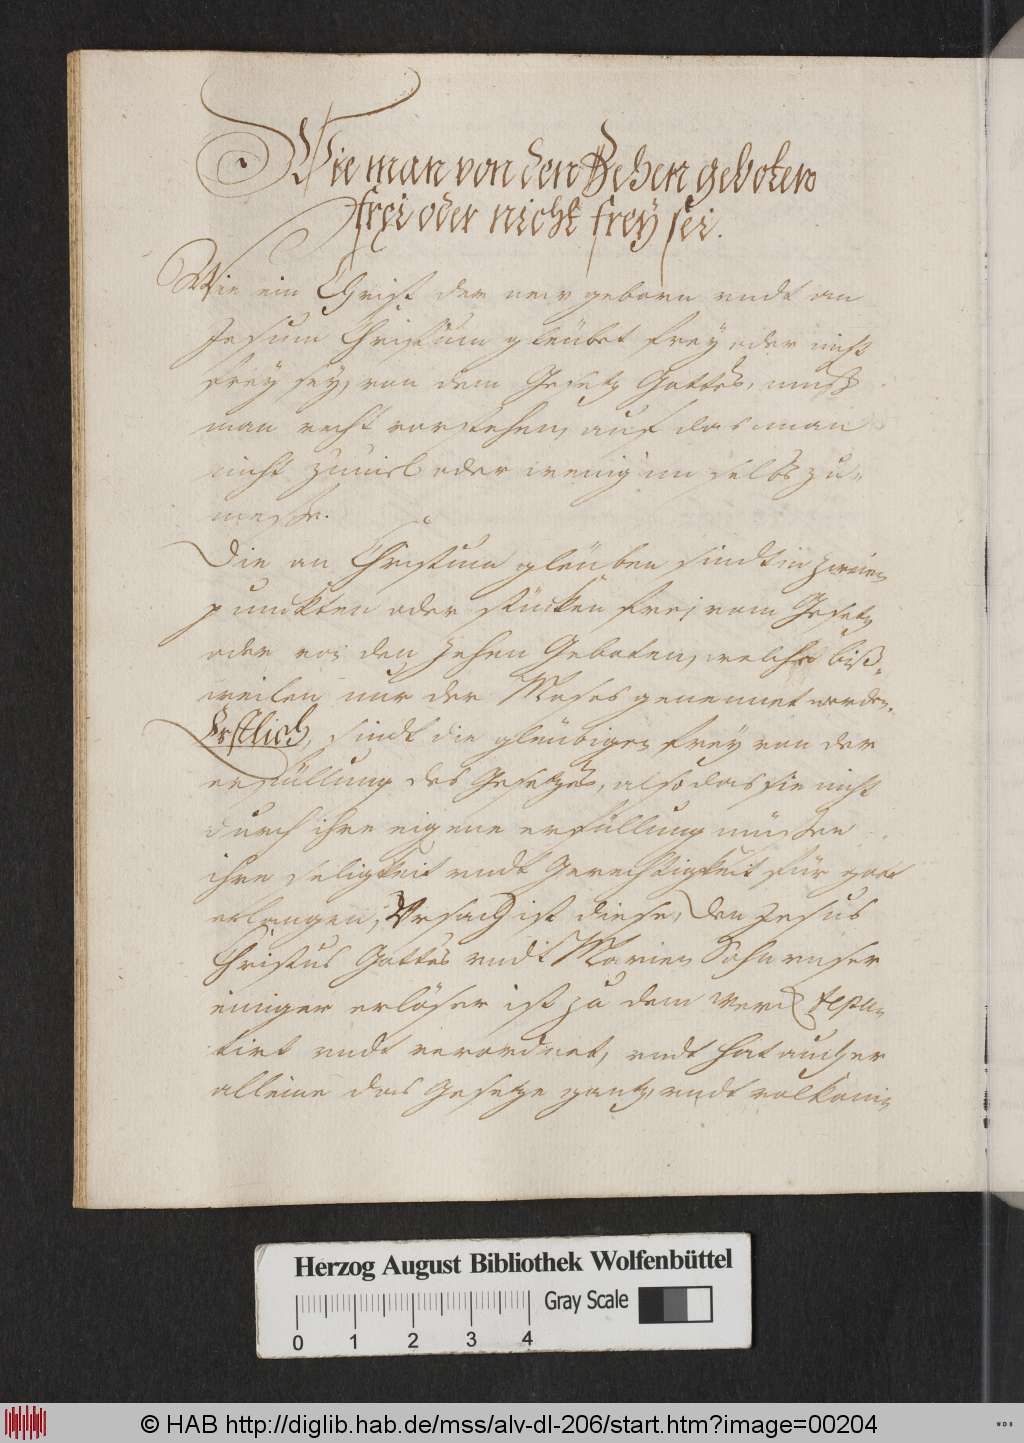 Wie man von den Zehen geboten
frei oder nicht frey sei.
Wie ein Christ der new geborn vndt an
Jesum Christum gleubet frey oder nicht
frey sey, von dem Gesetz Gottes, muß
man recht verstehen, auf das man
nicht zuuiel oder wenig im selbs zu-
messe.
Die an Christum gleuben sindt in zweien
punckten oder stücken frej vom Gesetz
oder von den Zehen Geboten, welche biß-
weilen nur der Moses genennet werden.
Erstlich, sindt die gleubigen frey von der
erfüllung des Gesetzes, also das sie nicht
durch ihre eigene erfüllung müssen
ihre seligkeit vndt Gerechtigkeit für gott
erlangen, Vrsach ist diese, Den Jesus
Christus Gottes vndt Marien Sohn vnser
einiger erlöser ist zu dem werck
tirt vndt verordnet, vndt hat auch er
alleine das Gesetze gantz vndt volkom-
Herzog August Bibliothek Wolfenbüttel
Gray Scale
0 1 2 3 4
© HAB http://diglib.hab.de/mss/alv-dl-206/start.htm?image=00204
WDB